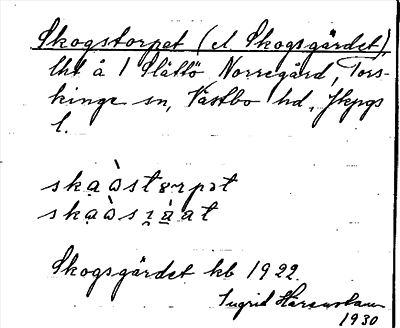 Skogstorpet (el Skogsgärdet),
lht å 1 Slättö Norregård, Tors-
kinge sn, Västbo hd, Jkpgs
l.
Skogsgärdet kb 1922.
Ingrid
1930